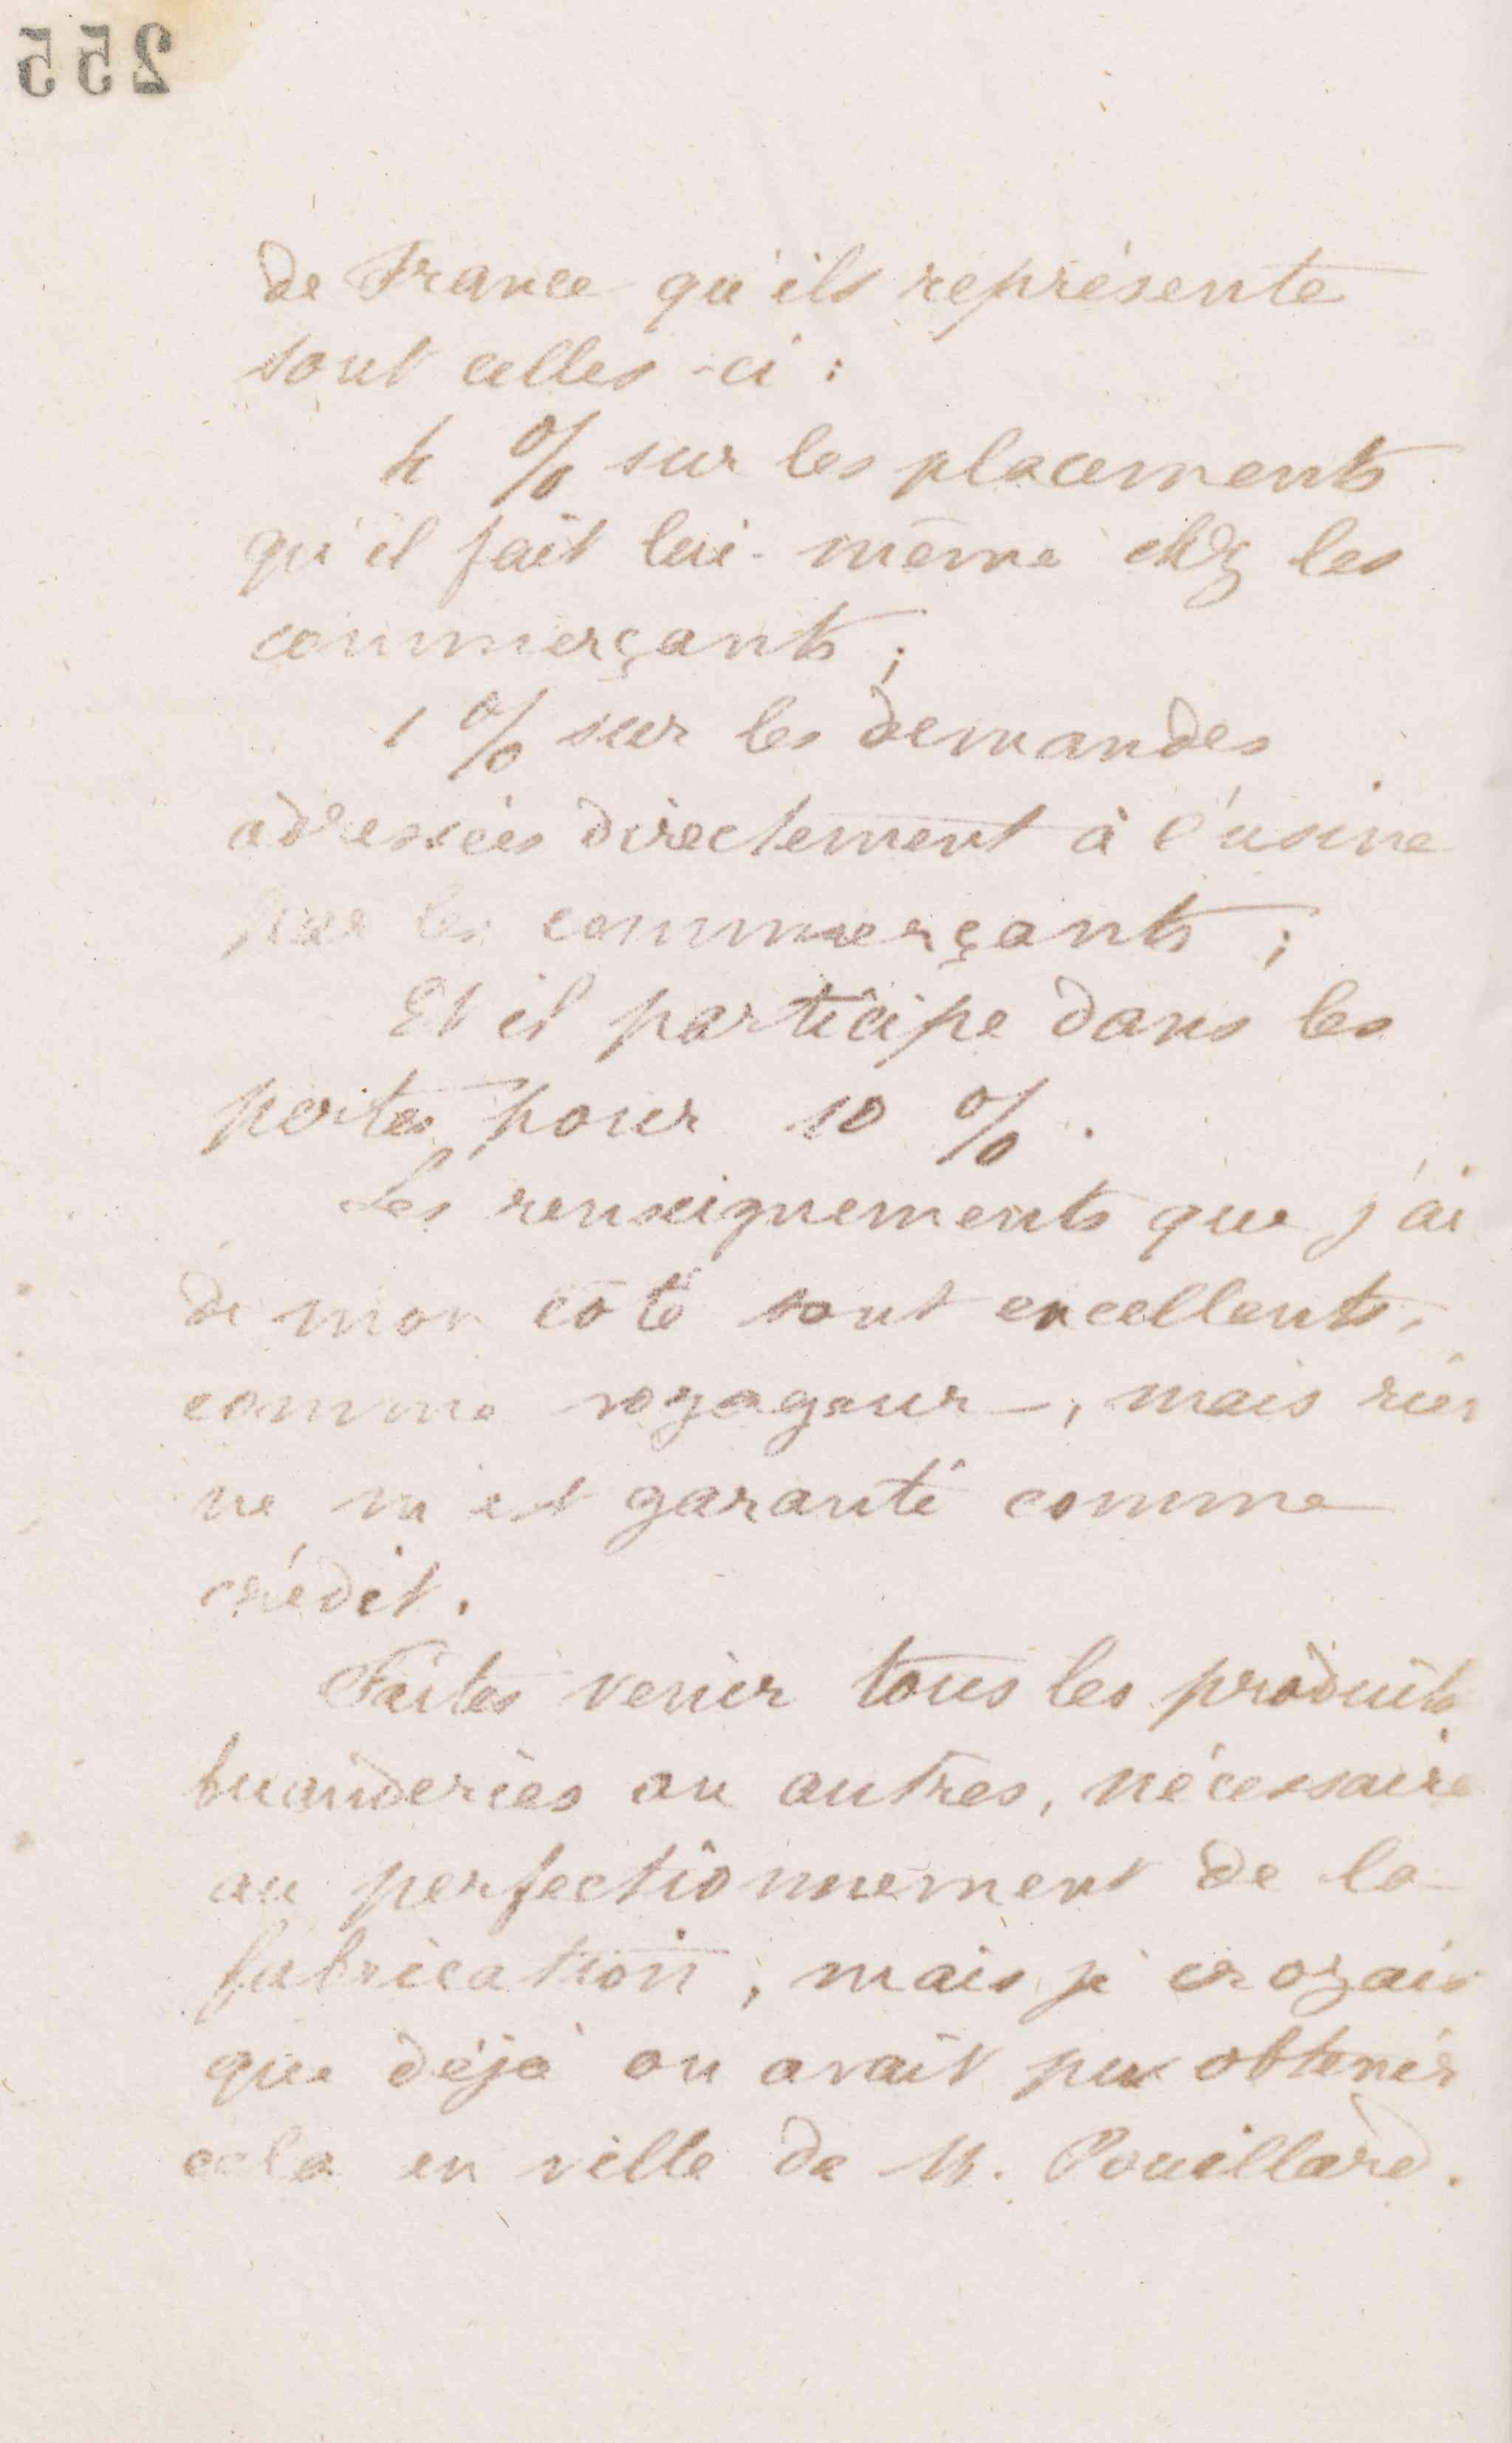 255
de France qu'ils représente
sont celles-ci :
4 % sur les placements
qu'il fait lui-même chez les
commerçants ;
1 % sur les demandes
adressées directement à l'usine
par les commerçants ;
Et il participe dans les
pertes pour 10 %.
Les renseignements que j'ai
de mon côté sont excellents,
comme voyageur —, mais rien
ne m'est garanti comme
crédit.
Faites venir tous les produits
buanderies ou autres, nécessaire
au perfectionnement de la
fabrication, mais je croyais
que déjà on avait pu obtenir
cela en ville de M. Pouillard.